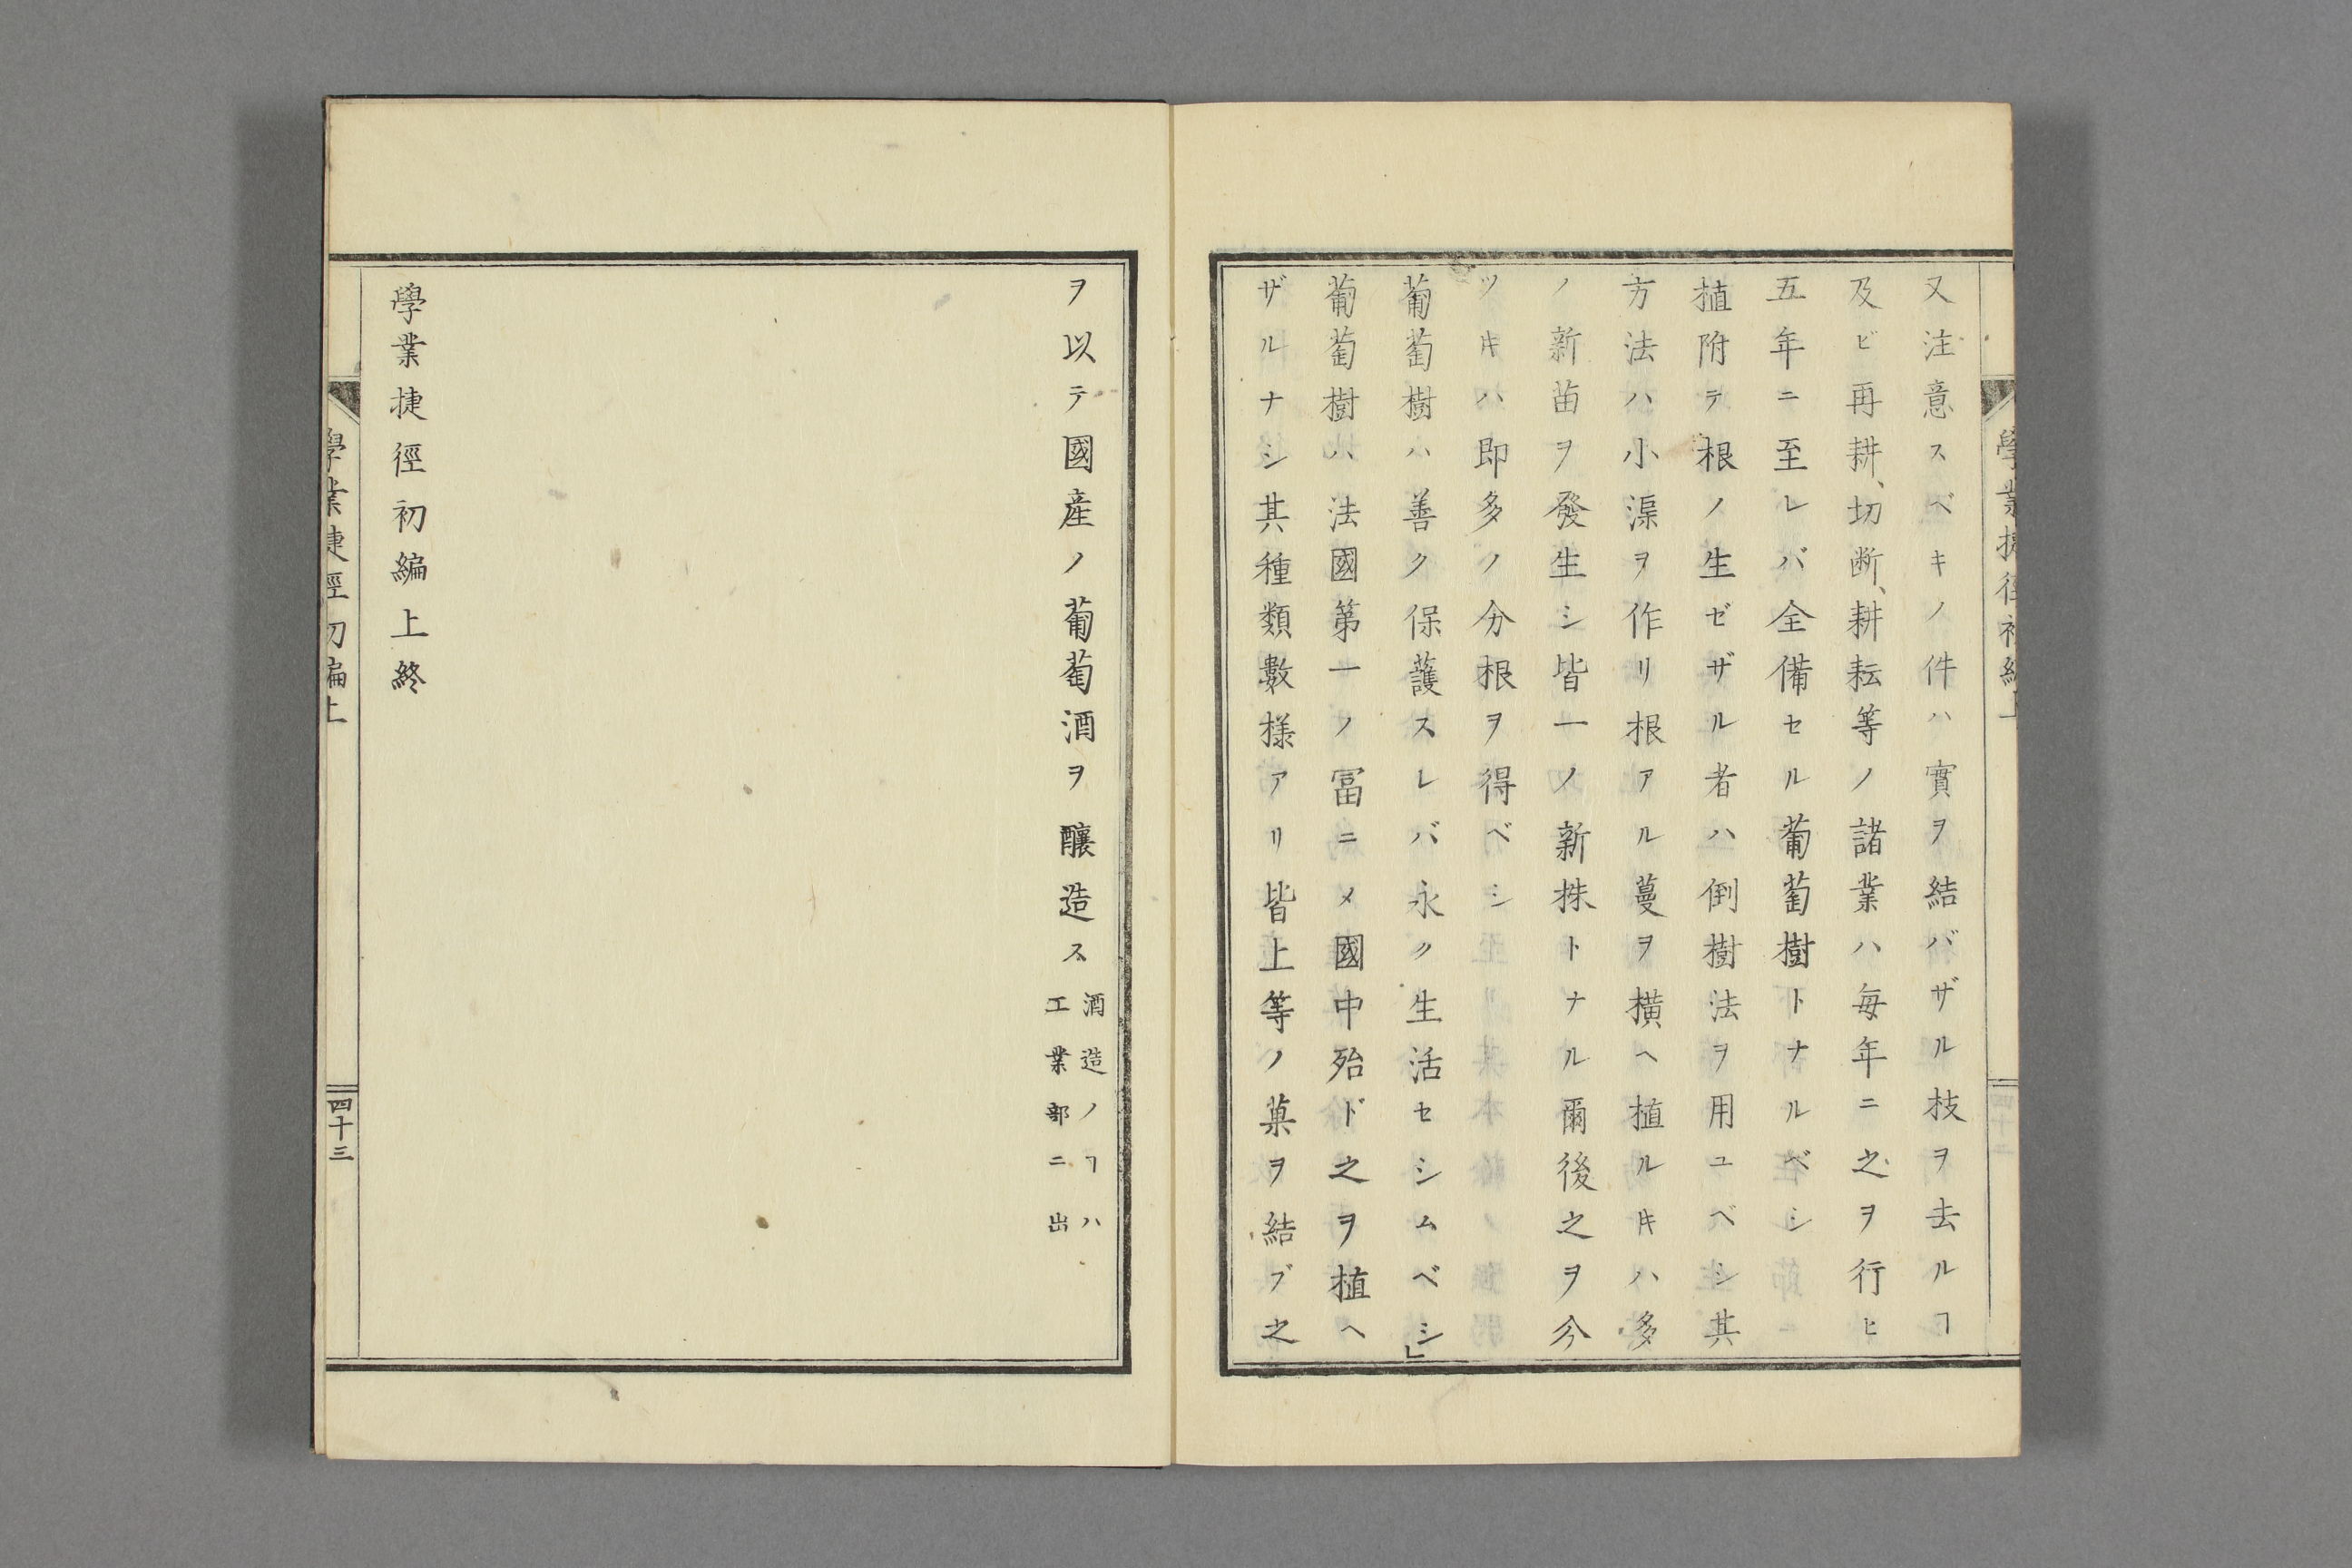 又注意スベキノ件ハ實ヲ結バザル枝ヲ去ルヿ
及ビ再耕、切断、耕耘等ノ諸業ハ毎年ニ之ヲ行ヒ
五年ニ至レバ全備セル葡萄樹トナルベシ
植附テ根ノ生ゼザル者ハ倒樹法ヲ用ユベシ其
方法ハ小渠ヲ作リ根アル蔓ヲ横ヘ植ルキハ多
ノ新苗ヲ發生シ皆一ノ新株トナル爾後之ヲ分
ツキハ即多ノ分根ヲ得ベシ
葡萄樹ハ善ク保護スレバ永ク生活セシムベシ」
葡萄樹ハ法國第一ノ冨ニメ國中殆ド之ヲ植ヘ
ザルナシ其種類數様アリ皆上等ノ菓ヲ結ブ之
ヲ以テ國産ノ葡萄酒ヲ釀造ス
酒造ノヿハ
工業部ニ出
學業捷徑初編上終
學業捷徑初編上
四十三